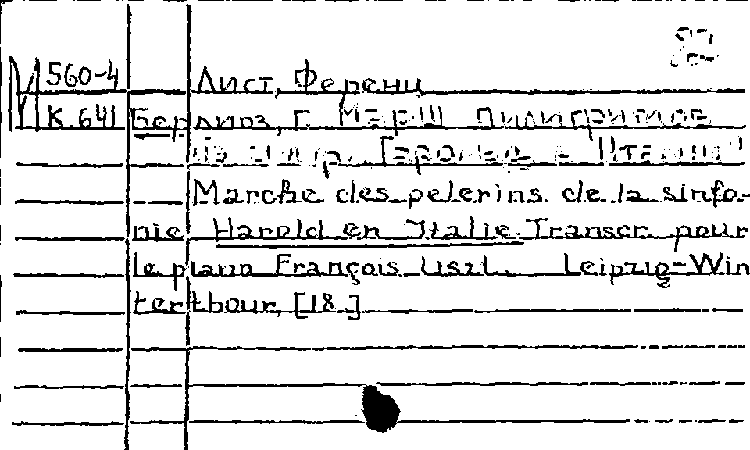 М 560-4 Лист, Ференц
К.641 Берлиоз, Г. Марш пилигримов
из Гарольд в Италии"
Marche des pelerins de la sinfo-
nie Harold en Italie Transcr. pour
le piano François Liszt. Leipzig-Win
terthour, [18 ]